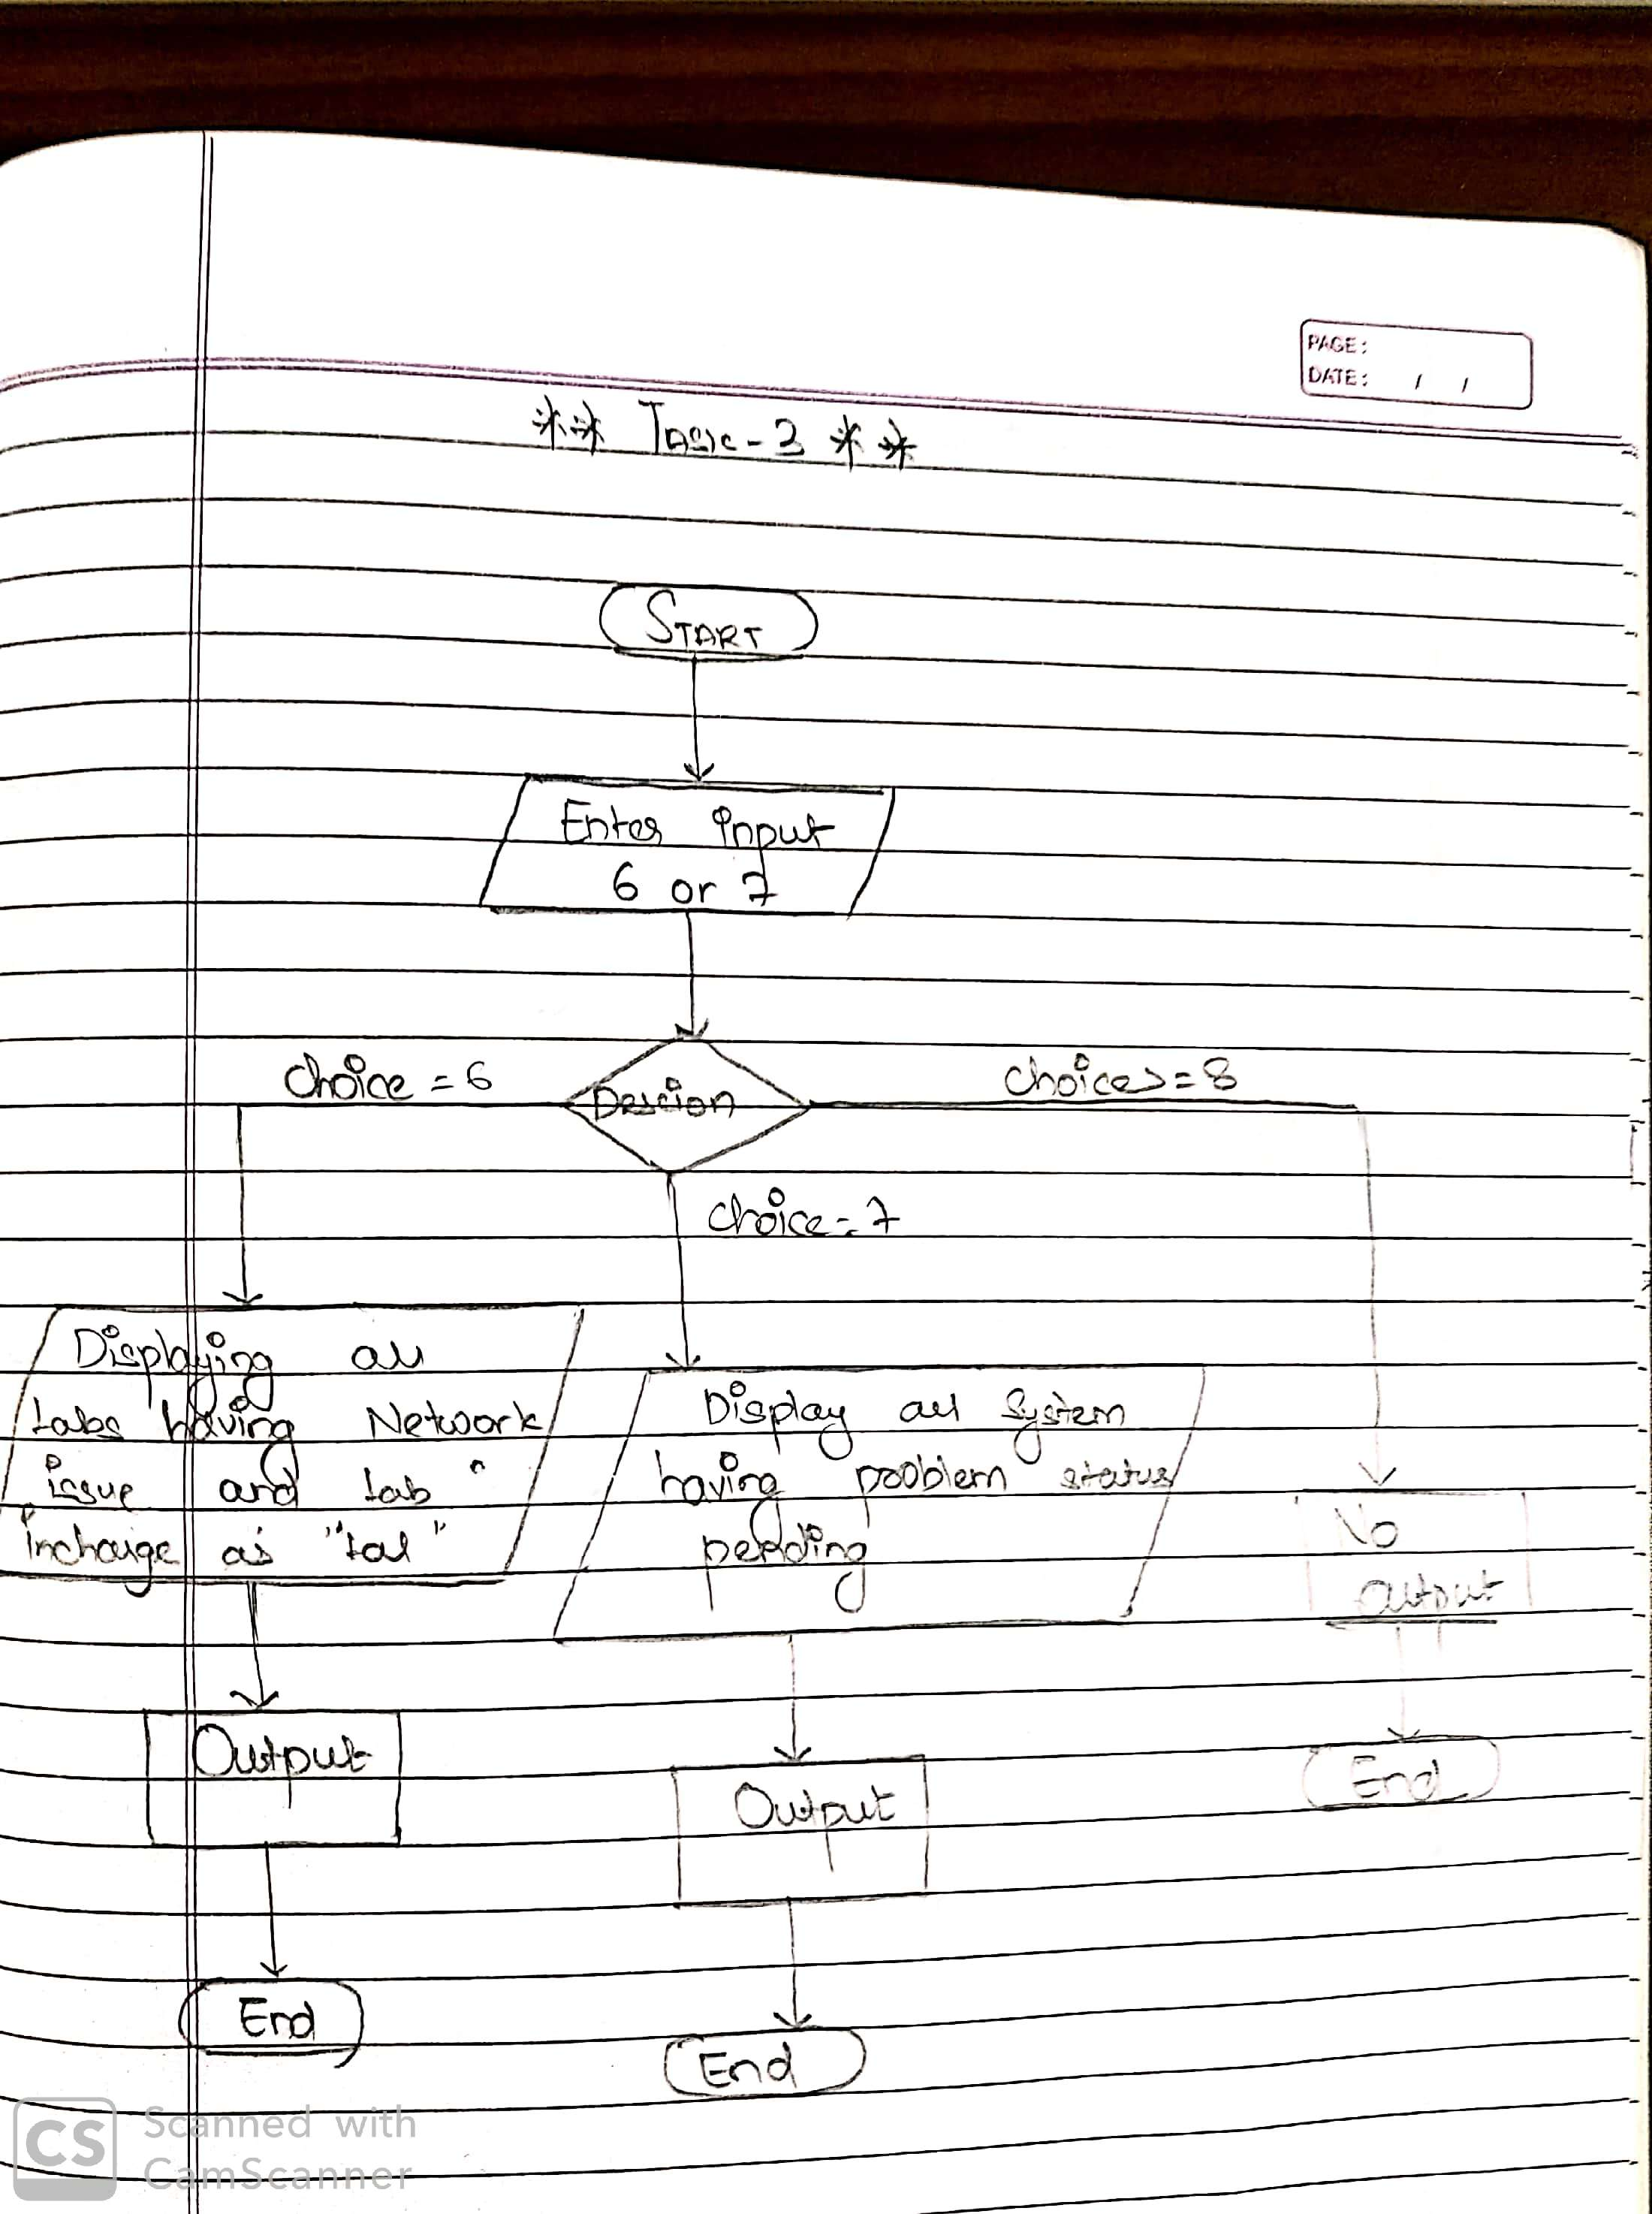 PAGE:
DATE: / /
** Task-3 **
START
Enter input
6 or 7
choice = 6
Descion
choice>=8
choice=7
Displaying all
Labs having Network
issue and lab
incharge as "
Display all System
having problem status
pending
No
output
Output
Output
End
End
End
CS
Scanned with
CamScanner